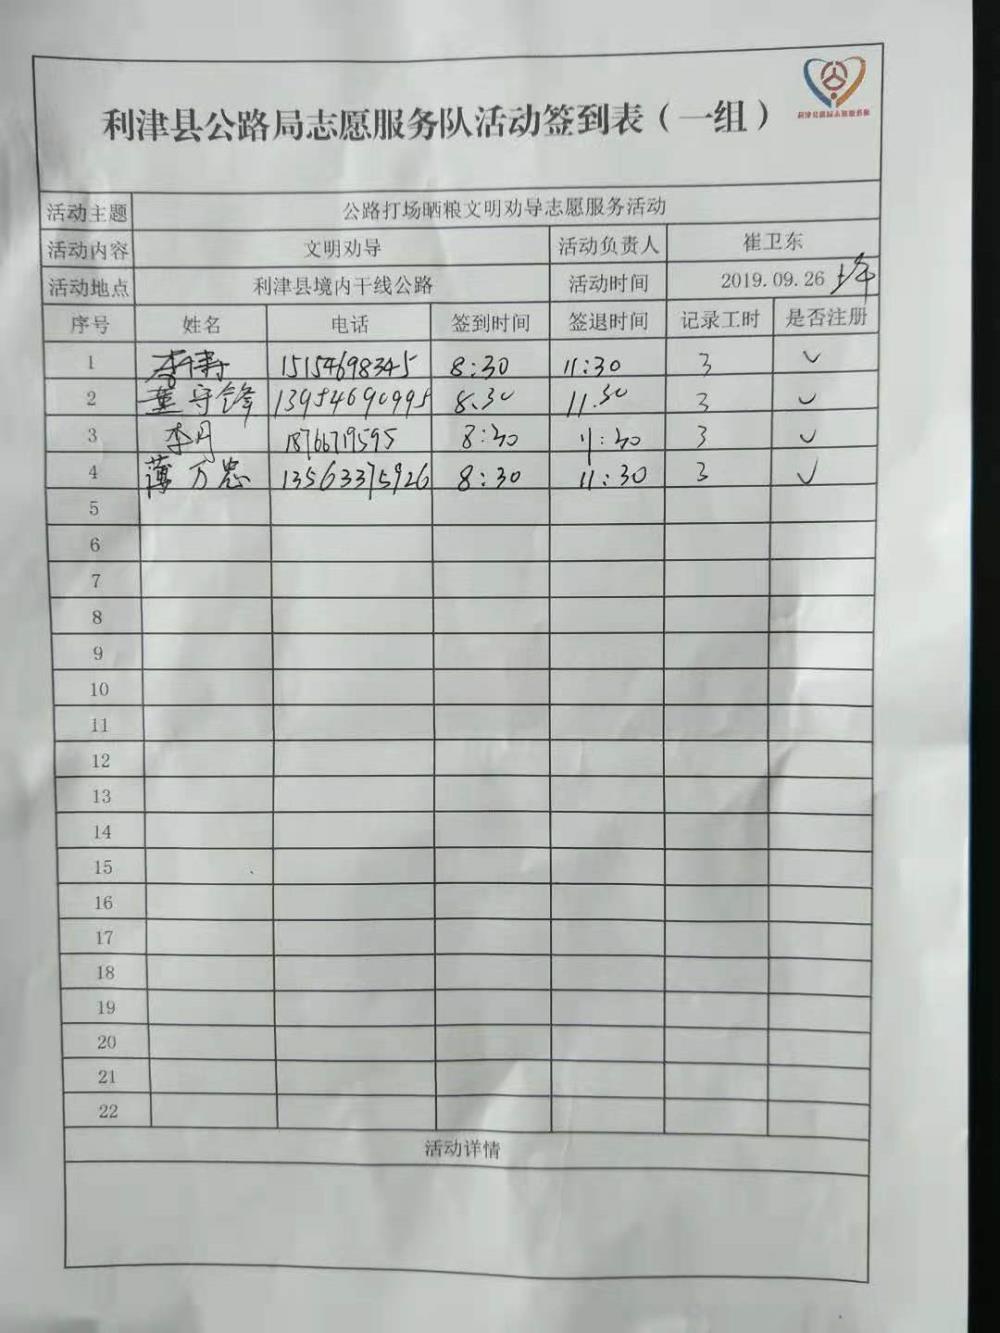 利津县公路局志愿服务队活动签到表（一组）
活动主题 公路打场晒粮文明劝导志愿服务活动
活动内容 文明劝导 活动负责人 崔卫东
活动地点 利津县境内干线公路 活动时间 2019.09.26 上午
序号 姓名 电话 签到时间 签退时间 记录工时 是否注册
1 李 15154698345 8:30 11:30 3 ✓
2 董守锋 13954690995 8.30 11.30 3 ✓
3 李月 18766719595 8:30 11:30 3 ✓
4 薄万忠 13563375926 8:30 11:30 3 ✓
5
6
7
8
9
10
11
12
13
14
15
16
17
18
19
20
21
22
活动详情